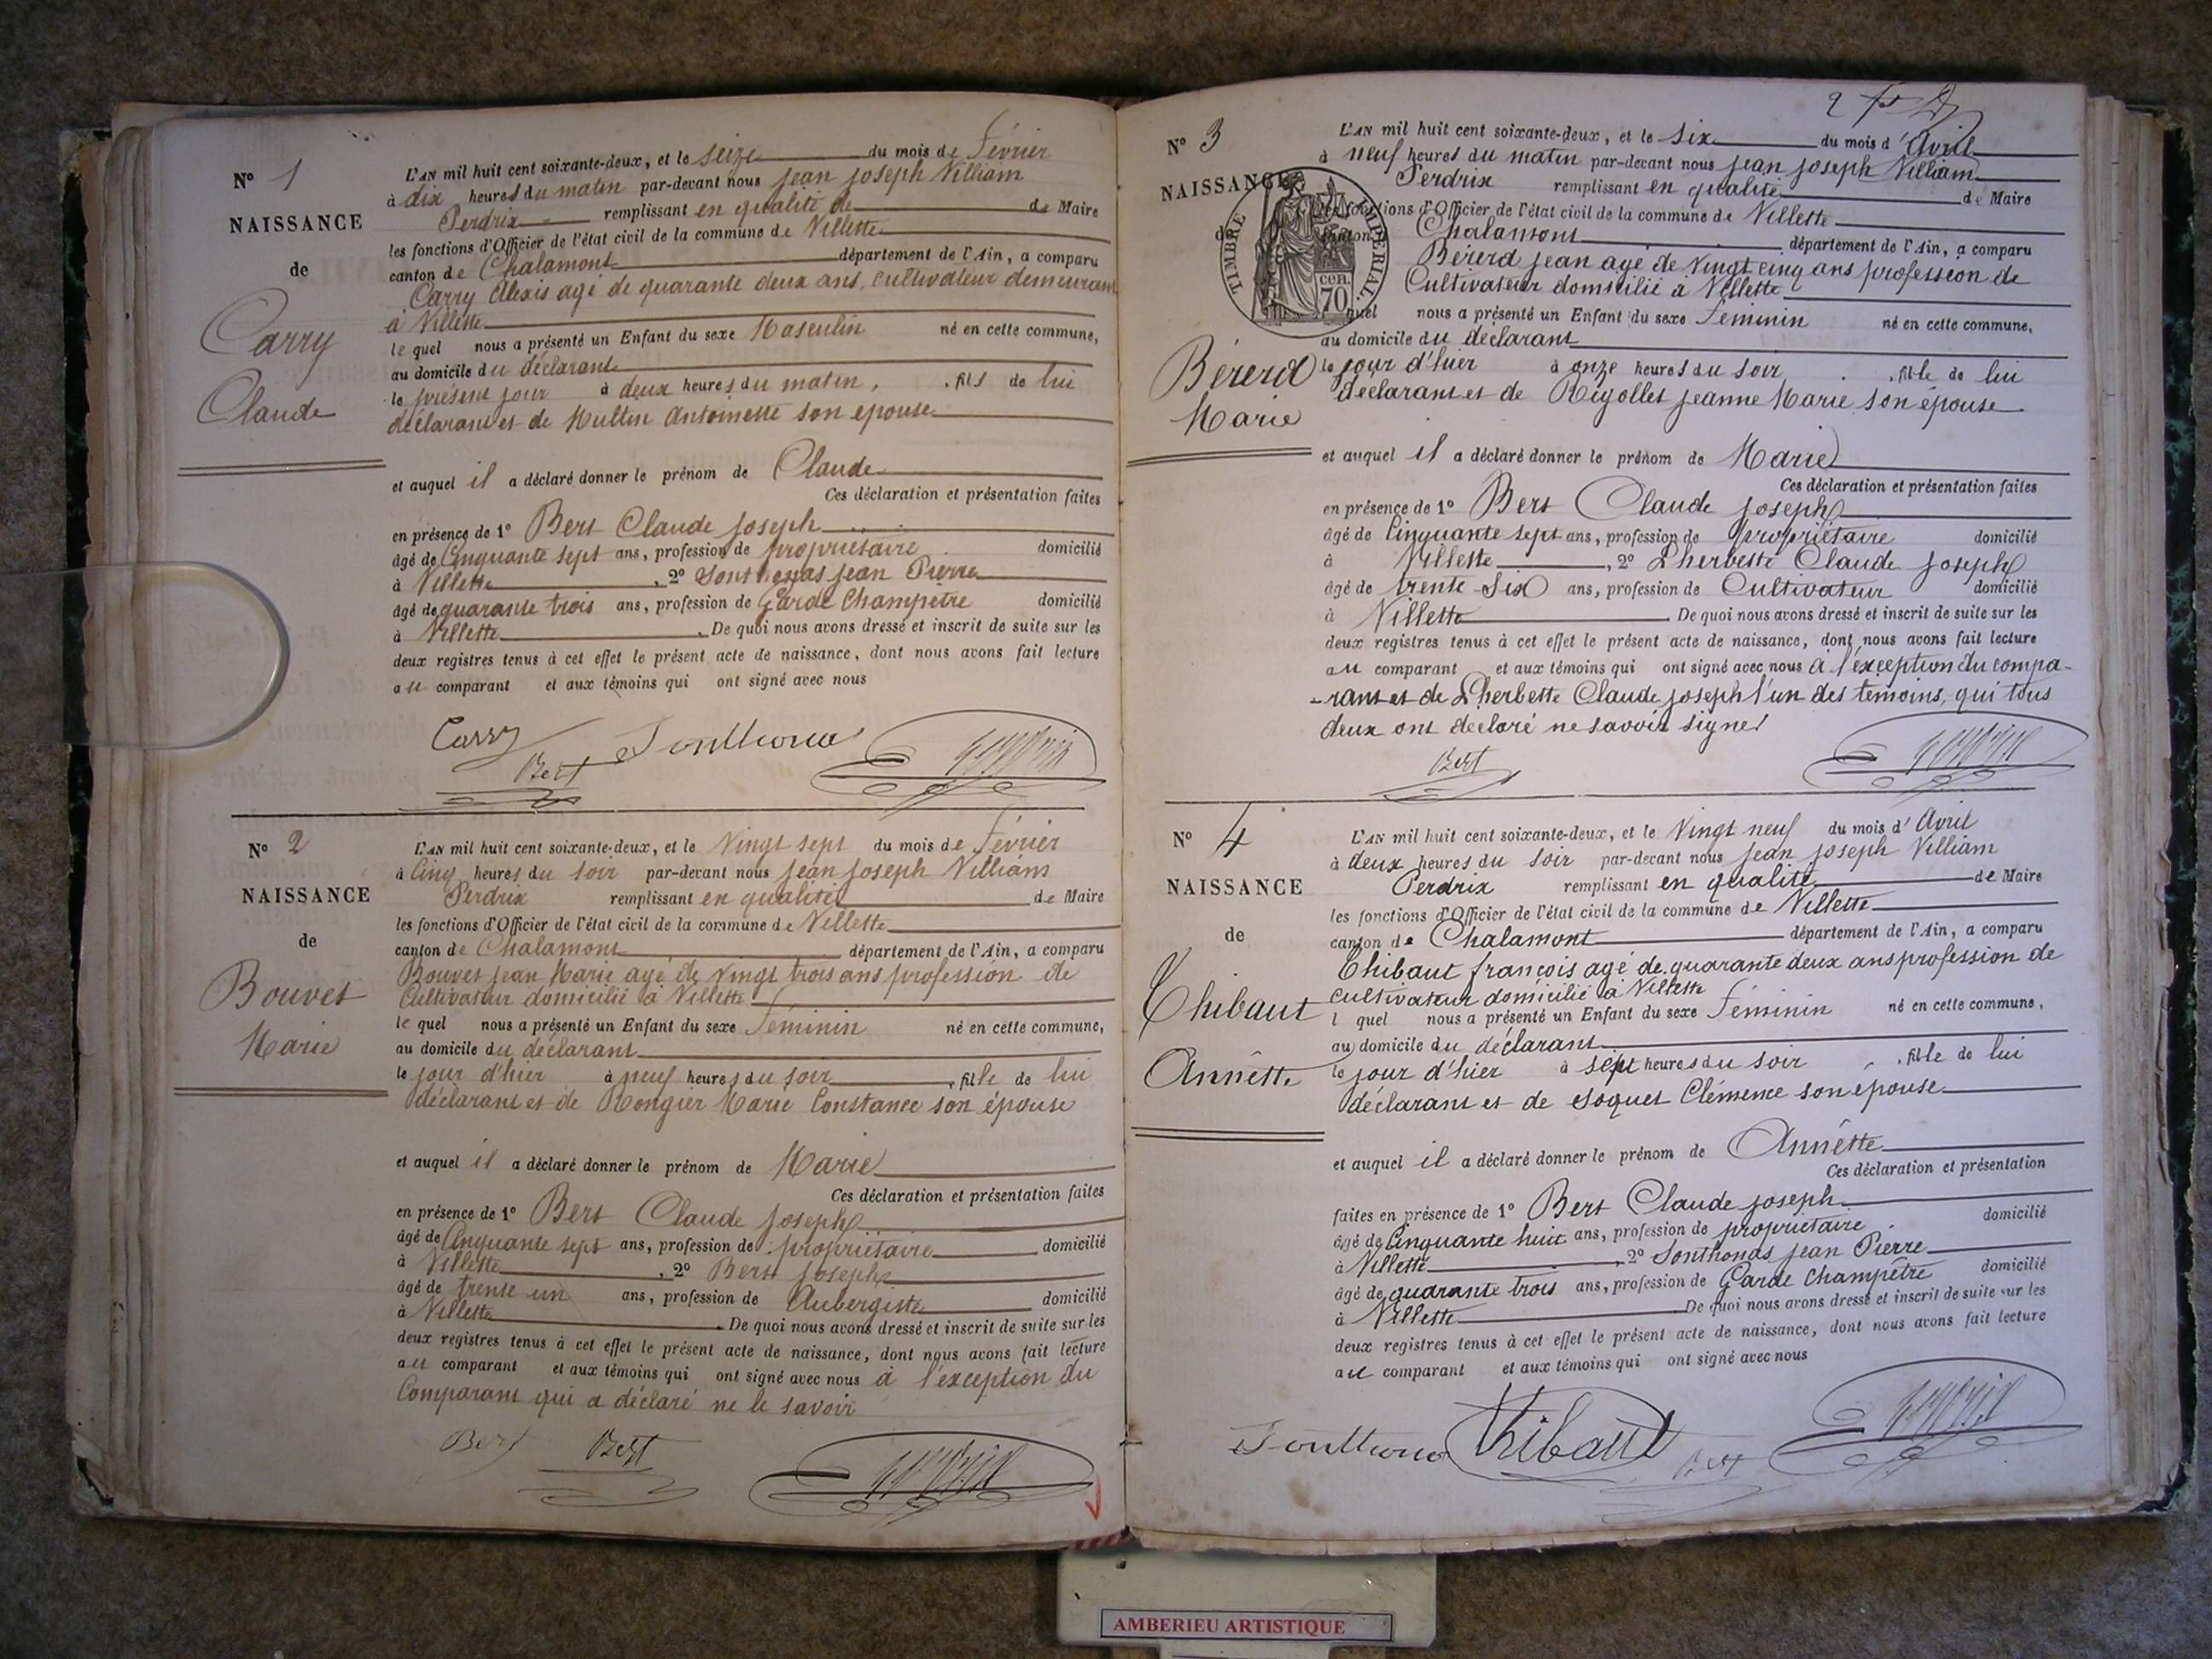 N° 1
NAISSANCE
de
Carry
Claude
L'AN mil huit cent soixante-deux, et le seize du mois de février
à dix heures du matin par-devant nous jean joseph Villiam
Perdrix remplissant en qualité de de Maire
les fonctions d'Officier de l'état civil de la commune de Villette
canton de Chalamont département de l'Ain, a comparu
Carry Alexis agé de quarante deux ans, cultivateur demeurant
à Villette
le quel nous a présenté un Enfant du sexe Masculin né en cette commune,
au domicile du déclarant
le présent jour à deux heures du matin, fils de lui
déclarant et de Multin Antoinette son épouse
et auquel il a déclaré donner le prénom de Claude
Ces déclaration et présentation faites
en présence de 1° Bert Claude joseph
âgé de Cinquante sept ans, profession de propriétaire domicilié
à Villette, 2° Sonthonas jean Pierre
âgé de quarante trois ans, profession de Garde Champêtre domicilié
à Villette. De quoi nous avons dressé et inscrit de suite sur les
deux registres tenus à cet effet le présent acte de naissance, dont nous avons fait lecture
au comparant et aux témoins qui ont signé avec nous
Carry Sonthonas
Bert
N° 2
NAISSANCE
de
Bouvet
Marie
L'AN mil huit cent soixante-deux, et le Vingt sept du mois de février
à Cinq heures du soir par-devant nous jean joseph Villiam
Perdrix remplissant en qualité de Maire
les fonctions d'Officier de l'état civil de la commune de Villette
canton de Chalamont département de l'Ain, a comparu
Bouvet jean Marie agé de Vingt trois ans profession de
Cultivateur domicilié à Villette
le quel nous a présenté un Enfant du sexe féminin né en cette commune,
au domicile du déclarant
le jour d'hier à neuf heures du soir, fille de lui
déclarant et de Rongier Marie Constance son épouse
et auquel il a déclaré donner le prénom de Marie
Ces déclaration et présentation faites
en présence de 1° Bert Claude joseph
âgé de Cinquante sept ans, profession de propriétaire domicilié
à Villette, 2° Bert joseph
âgé de trente un ans, profession de Aubergiste domicilié
à Villette. De quoi nous avons dressé et inscrit de suite sur les
deux registres tenus à cet effet le présent acte de naissance, dont nous avons fait lecture
au comparant et aux témoins qui ont signé avec nous à l'exception du
Comparant qui a déclaré ne le savoir
Bert Bert
2
N° 3
NAISSANCE
de
Bérerd
Marie
TIMBRE IMPERIAL
70 cen.
L'AN mil huit cent soixante-deux, et le six du mois d'Avril
à neuf heures du matin par-devant nous jean joseph Villiam
Perdrix remplissant en qualité de Maire
les fonctions d'Officier de l'état civil de la commune de Villette
canton Chalamont département de l'Ain, a comparu
Bérerd jean agé de Vingt cinq ans profession de
Cultivateur domicilié à Villette
quel nous a présenté un Enfant du sexe féminin né en cette commune,
au domicile du déclarant
le jour d'hier à onze heures du soir, fille de lui
déclarant et de Rigollet jeanne Marie son épouse
et auquel il a déclaré donner le prénom de Marie
Ces déclaration et présentation faites
en présence de 1° Bert Claude joseph
âgé de Cinquante sept ans, profession de propriétaire domicilié
à Villette, 2° Lherbette Claude joseph
âgé de trente six ans, profession de Cultivateur domicilié
à Villette De quoi nous avons dressé et inscrit de suite sur les
deux registres tenus à cet effet le présent acte de naissance, dont nous avons fait lecture
au comparant et aux témoins qui ont signé avec nous à l'exception du compa-
-rant et de Lherbette Claude joseph l'un des témoins, qui tous
deux ont déclaré ne savoir signer
Bert
N° 4
NAISSANCE
de
Thibaut
Annette
L'AN mil huit cent soixante-deux, et le Vingt neuf du mois d'Avril
à deux heures du soir par-devant nous jean joseph Villiam
Perdrix remplissant en qualité de Maire
les fonctions d'Officier de l'état civil de la commune de Villette
canton de Chalamont département de l'Ain, a comparu
Thibaut françois agé de quarante deux ans profession de
cultivateur domicilié à Villette
l quel nous a présenté un Enfant du sexe féminin né en cette commune,
au domicile du déclarant
le jour d'hier à sept heures du soir, fille de lui
déclarant et de Soquet Clémence son épouse
et auquel il a déclaré donner le prénom de Annette
Ces déclaration et présentation
faites en présence de 1° Bert Claude joseph domicilié
âgé de Cinquante huit ans, profession de propriétaire
à Villette, 2° Sonthonas jean Pierre
âgé de quarante trois ans, profession de Garde champêtre domicilié
à Villette De quoi nous avons dressé et inscrit de suite sur les
deux registres tenus à cet effet le présent acte de naissance, dont nous avons fait lecture
au comparant et aux témoins qui ont signé avec nous
Sonthonas Thibaut Bert
AMBERIEU ARTISTIQUE